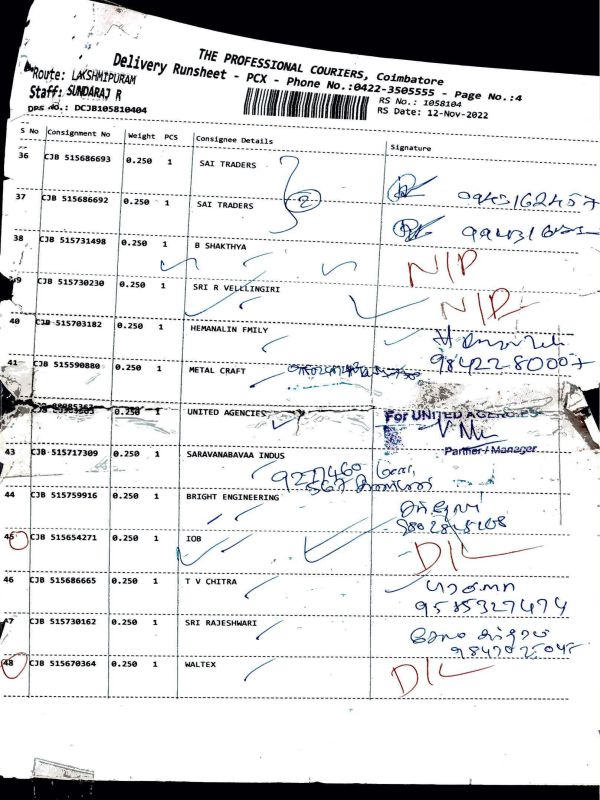 THE PROFESSIONAL COURIERS, Coimbatore
Delivery Runsheet - PCX - Phone No.:0422-3505555 - Page No.:4
Route: LAKSHMIPURAM
Staff: SUNDARAJ R
RS No.: 1058104
DPS No.: DCJB105810404
RS Date: 12-Nov-2022
S No Consignment No Weight PCS Consignee Details Signature
36 CJB 515686693 0.250 1 SAI TRADERS
37 CJB 515686692 0.250 1 SAI TRADERS 2
38 CJB 515731498 0.250 1 B SHAKTHYA N/P
39 CJB 515730230 0.250 1 SRI R VELLLINGIRI N/P
40 CJB 515703182 0.250 1 HEMANALIN FMILY
98422-80007
41 CJB 515590880 0.250 1 METAL CRAFT
CJB 0.250 1 UNITED AGENCIES For UNITED AGENCIES
Partner / Manager
43 CJB 515717309 0.250 1 SARAVANABAVAA INDUS
44 CJB 515759916 0.250 1 BRIGHT ENGINEERING
45 CJB 515654271 0.250 1 IOB D/L
46 CJB 515686665 0.250 1 T V CHITRA
9585327474
47 CJB 515730162 0.250 1 SRI RAJESHWARI
48 CJB 515670364 0.250 1 WALTEX D/L